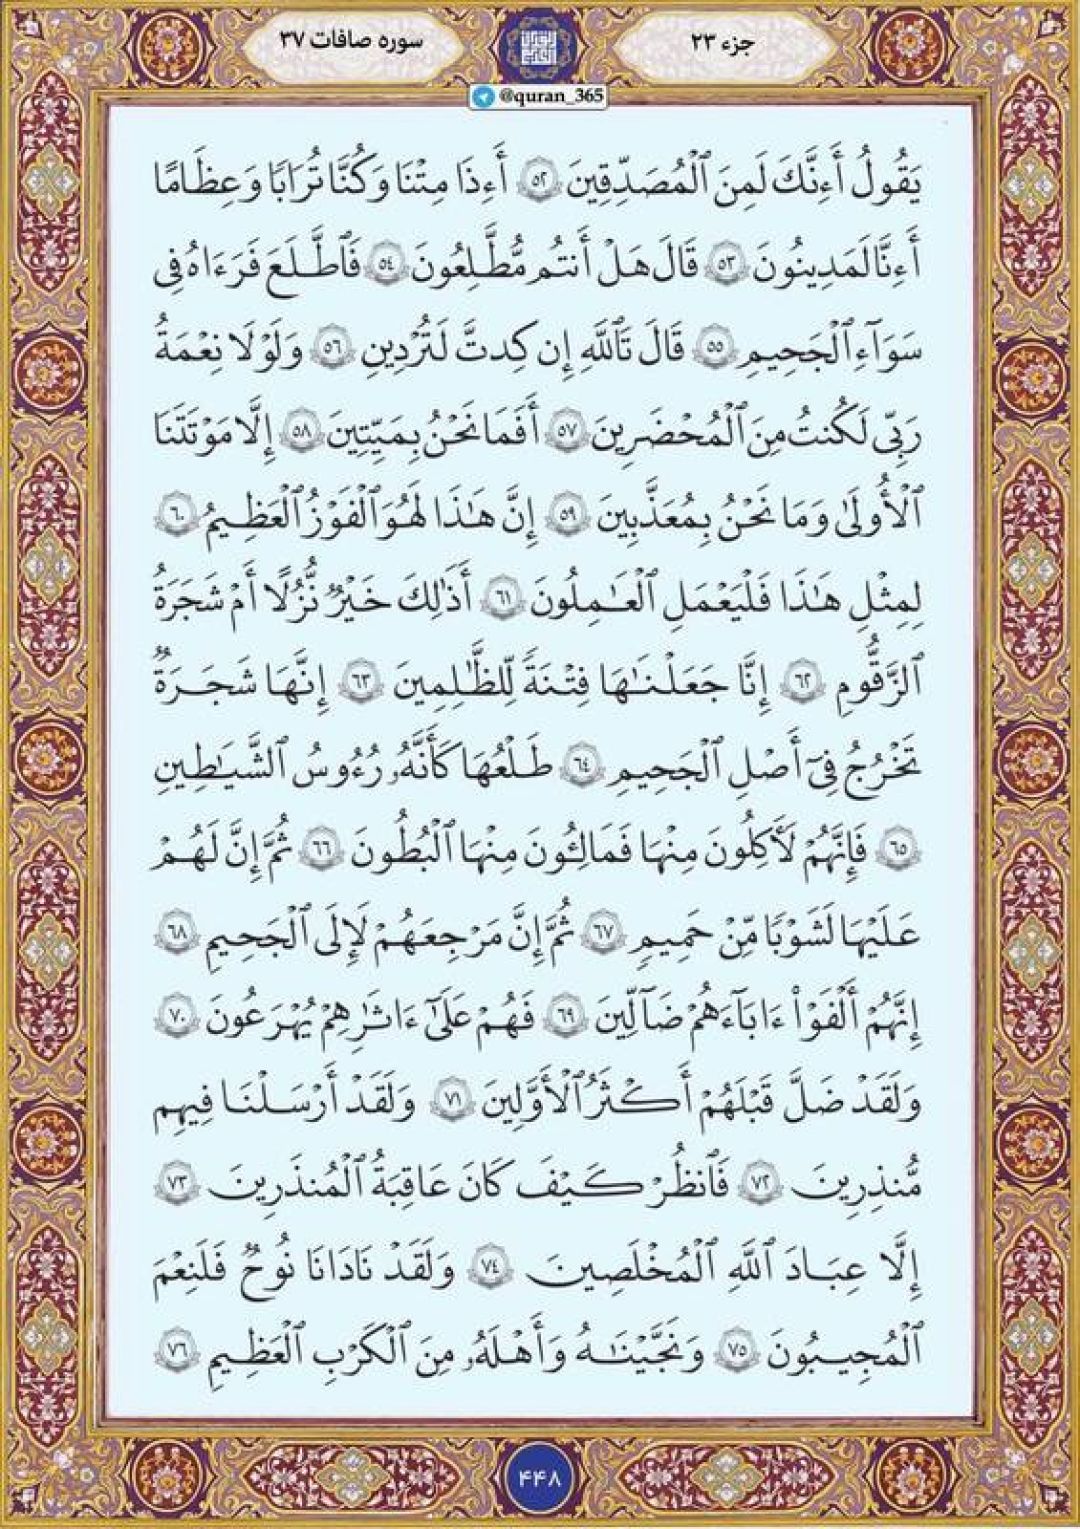 جزء ۲۳
سوره صافات ۳۷
@quran_365
يَقُولُ أَءِنَّكَ لَمِنَ ٱلْمُصَدِّقِينَ ٥٢ أَءِذَا مِتْنَا وَكُنَّا تُرَابًا وَعِظَامًا
أَءِنَّا لَمَدِينُونَ ٥٣ قَالَ هَلْ أَنتُم مُّطَّلِعُونَ ٥٤ فَٱطَّلَعَ فَرَءَاهُ فِى
سَوَآءِ ٱلْجَحِيمِ ٥٥ قَالَ تَٱللَّهِ إِن كِدتَّ لَتُرْدِينِ ٥٦ وَلَوْلَا نِعْمَةُ
رَبِّى لَكُنتُ مِنَ ٱلْمُحْضَرِينَ ٥٧ أَفَمَا نَحْنُ بِمَيِّتِينَ ٥٨ إِلَّا مَوْتَتَنَا
ٱلْأُولَىٰ وَمَا نَحْنُ بِمُعَذَّبِينَ ٥٩ إِنَّ هَٰذَا لَهُوَ ٱلْفَوْزُ ٱلْعَظِيمُ ٦٠
لِمِثْلِ هَٰذَا فَلْيَعْمَلِ ٱلْعَٰمِلُونَ ٦١ أَذَٰلِكَ خَيْرٌ نُّزُلًا أَمْ شَجَرَةُ
ٱلزَّقُّومِ ٦٢ إِنَّا جَعَلْنَٰهَا فِتْنَةً لِّلظَّٰلِمِينَ ٦٣ إِنَّهَا شَجَرَةٌ
تَخْرُجُ فِىٓ أَصْلِ ٱلْجَحِيمِ ٦٤ طَلْعُهَا كَأَنَّهُۥ رُءُوسُ ٱلشَّيَٰطِينِ
٦٥ فَإِنَّهُمْ لَـَٔاكِلُونَ مِنْهَا فَمَالِـُٔونَ مِنْهَا ٱلْبُطُونَ ٦٦ ثُمَّ إِنَّ لَهُمْ
عَلَيْهَا لَشَوْبًا مِّنْ حَمِيمٍ ٦٧ ثُمَّ إِنَّ مَرْجِعَهُمْ لَإِلَى ٱلْجَحِيمِ ٦٨
إِنَّهُمْ أَلْفَوْا۟ ءَابَآءَهُمْ ضَآلِّينَ ٦٩ فَهُمْ عَلَىٰٓ ءَاثَٰرِهِمْ يُهْرَعُونَ ٧٠
وَلَقَدْ ضَلَّ قَبْلَهُمْ أَكْثَرُ ٱلْأَوَّلِينَ ٧١ وَلَقَدْ أَرْسَلْنَا فِيهِم
مُّنذِرِينَ ٧٢ فَٱنظُرْ كَيْفَ كَانَ عَاقِبَةُ ٱلْمُنذَرِينَ ٧٣
إِلَّا عِبَادَ ٱللَّهِ ٱلْمُخْلَصِينَ ٧٤ وَلَقَدْ نَادَانَا نُوحٌ فَلَنِعْمَ
ٱلْمُجِيبُونَ ٧٥ وَنَجَّيْنَٰهُ وَأَهْلَهُۥ مِنَ ٱلْكَرْبِ ٱلْعَظِيمِ ٧٦
۴۴۸